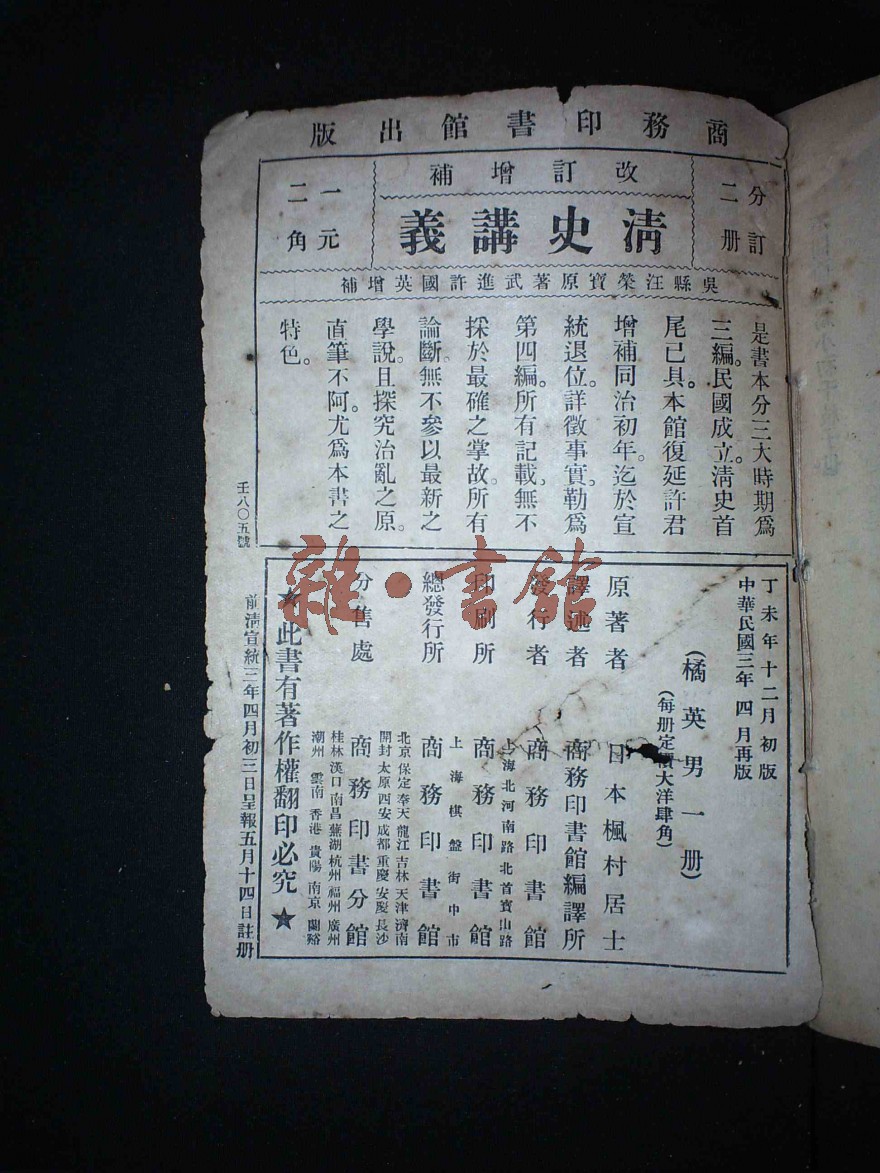 商務印書館出版
分訂二册
改訂增補
清史講義
一元二角
吳縣汪榮寶原著武進許國英增補
是書本分三大時期爲
三編。民國成立。清史首
尾已具。本館復延許君
增補同治初年。迄於宣
統退位。詳徵事實。勒爲
第四編。所有記載。無不
採於最確之掌故。所有
論斷。無不參以最新之
學說。且探究治亂之原。
直筆不阿。尤爲本書之
特色。
壬八〇五號
丁未年十二月初版
中華民國三年四月再版
(橘英男一册)
(每册定價大洋肆角)
原著者 日本楓村居士
譯述者 商務印書館編譯所
發行者 商務印書館
上海北河南路北首寶山路
印刷所 商務印書館
上海棋盤街中市
總發行所 商務印書館
北京保定奉天龍江吉林天津濟南
開封太原西安成都重慶安慶長沙
分售處 商務印書分館
桂林漢口南昌蕪湖杭州福州廣州
潮州雲南香港貴陽南京蘭谿
★此書有著作權翻印必究★
前清宣統三年四月初三日呈報五月十四日註册
雜·書館